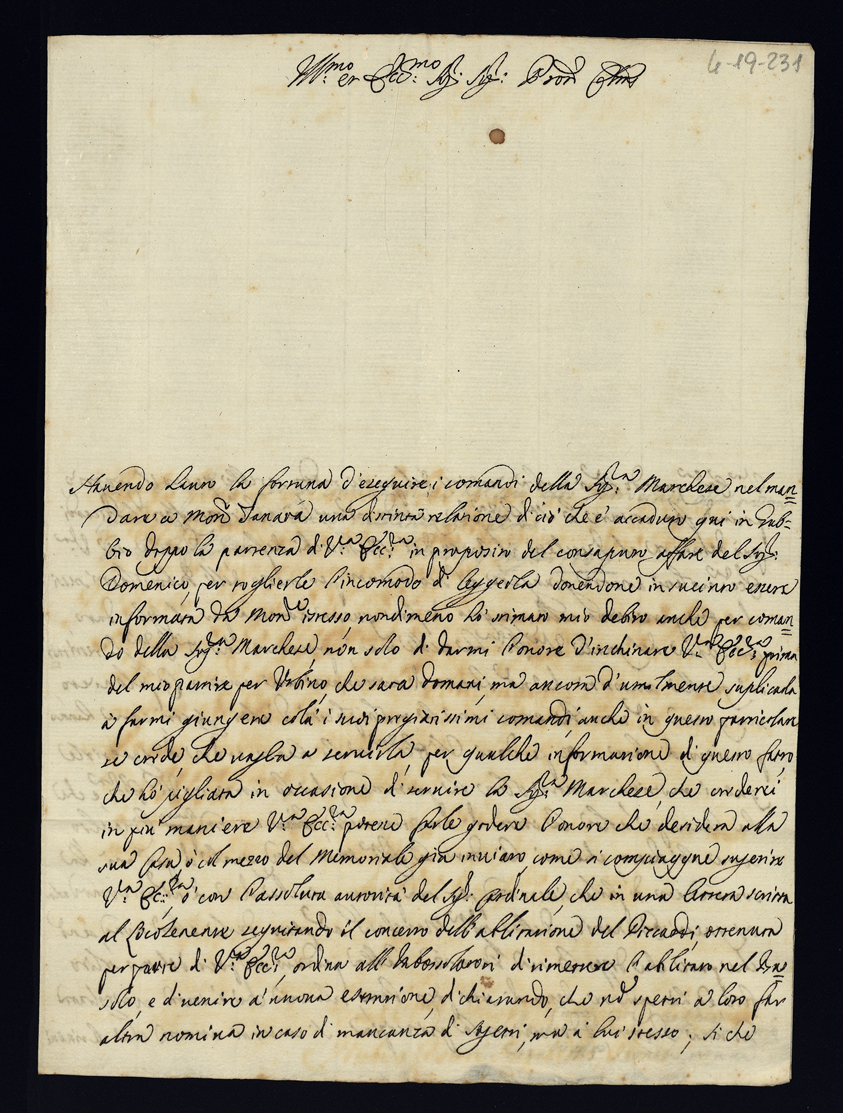 4-19-231
Ill.mo et Ecc.mo Sig. Sig.: Pron Colmo
Hauendo hauto la fortuna d'eseguire i comandi della Sig.ra Marchese nel man=
dare a Mon.r Tanara una distinta relatione di ciò che é accaduto qui in Gub=
bio doppo la partenza di V.ra Ecc.za in proposito del consaputo affare del Sig.r
Domenico, per toglierle l'incomodo di leggerla douendone in succinto essere
informata da Mon.r istesso nondimeno hò stimato mio debito anche per coman=
do della Sig.ra Marchese non solo di darmi l'onore d'inchinare V.ra Ecc.za prima
del mio partire per Vrbino che sarà domani, ma ancora d'umilmente suplicarla
à farmi giungere colà i suoi pregiatissimi comandi anche in questo particolare
se crede che uaglia a seruirla, per qualche informatione di questo fatto
che hò pigliata in occasione di seruire la Sig.ra Marchese, che crederei
in più maniere V.ra Ecc.za potere farle godere l'onore che desidera alla
sua Casa ò col mezzo del Memoriale già inuiato, come si compiacque sugerire
V.ra Ecc.za ò con l'assoluta autorità del Sig. Cardinale, che in una lettera scritta
al seguitando il concerto dell'abilitatione del ottenuta
per parte di V.ra Ecc.za, ordina all' Imbossolatori di rimettere l'abilitato nel Bu=
solo, e di uenire à nuoua estrattione dichiarando, che nō spetti a loro far
altra nomina in caso di mancanza di Sogetti, ma à lui stesso; si che